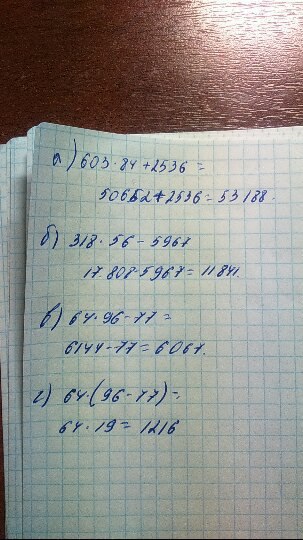 а) 603·84+2536=
50652+2536=53188.
б) 318·56-5967
17808-5967=11841.
в) 64·96-77=
6144-77=6067.
г) 64·(96-77)=
64·19=1216